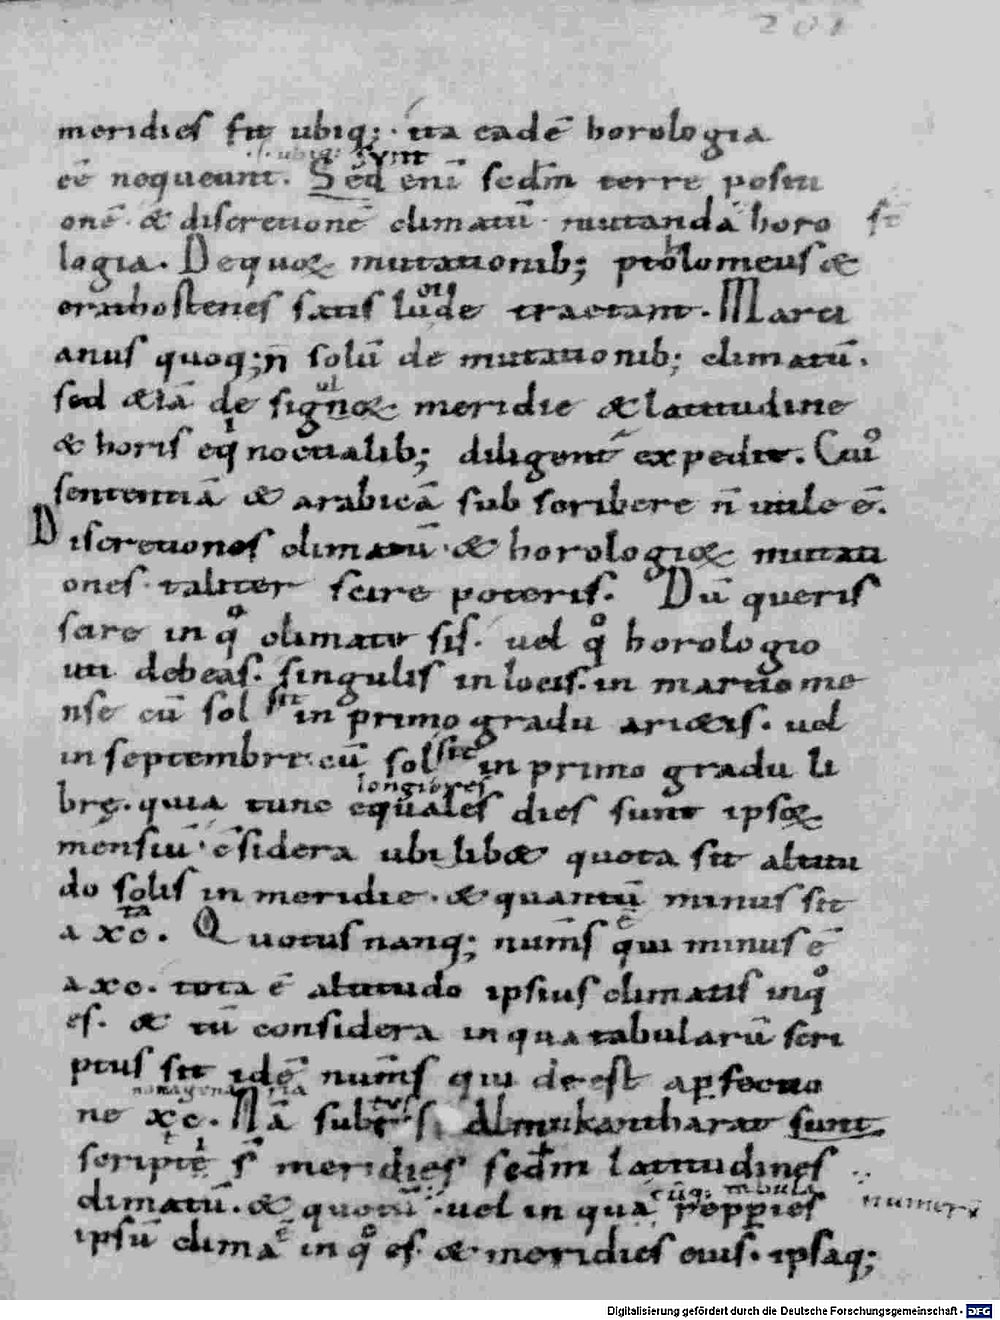 201
meridies sit ubiq; ita eadē horologia
eē nequeunt. Sed enī scdm terre positi
onē & discretionē climatū mutanda horo
logia. De quoꝝ mutationib; ptholomeus &
erathostenes satis lucide tractant. Marci
anus quoq; n̄ solū de mutationib; climatū.
sed &iā de signoꝝ meridie & latitudine
& horis eqinoctialib; diligent expedit. Cui᾽
sententiā & arabicā sub scribere n̄ utile ē.
Discretiones climatū & horologioꝝ mutati
ones taliter scire poteris. Dū queris
scire in qͦ climate sis. uel qͦ horologio
uti debeas. singulis in locis. in martio me
nse cū sol sit in primo gradu ari&is. uel
in septembri. cū sol sit in primo gradu li
longiores
brę. quia tunc equales dies sunt ipsoꝝ
mensiū. c̄sidera ubi lib& quota sit altitu
do solis in meridie. & quantū minus sit
a xc. Quotus nanq; num̄s qui minus ē
a xc. tota ē altitudo ipsius climatis in qͦ
es. & tū considera in qua tabularū scri
ptus sit idē num̄s qui de est a pfectio
ne xc. Nā sub Almukantharat sunt
scripte meridies scdm latitudines
climatū. & quotū uel in qua reppies
numerū
ipsū clima in qͦ es. & meridies eius. ipsaq;
Digitalisierung gefördert durch die Deutsche Forschungsgemeinschaft - DFG